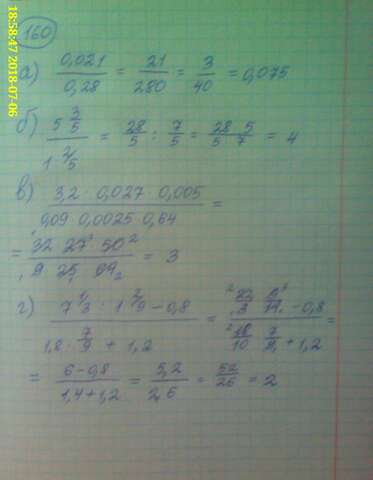 18:58:47 2018-07-06
160
а) 0,021 / 0,28 = 21 / 280 = 3 / 40 = 0,075
б) 5 3/5 / 1 2/5 = 28/5 : 7/5 = 28 5 / 5 7 = 4
в) 3,2 · 0,027 · 0,005 / 0,09 · 0,0025 · 0,64 =
= 32 · 27 · 50 / 9 · 25 · 64 = 3
г) 7 1/3 : 1 2/9 - 0,8 / 1,8 · 7/9 + 1,2 =
= 6 - 0,8 / 1,4 + 1,2 = 5,2 / 2,6 = 52 / 26 = 2